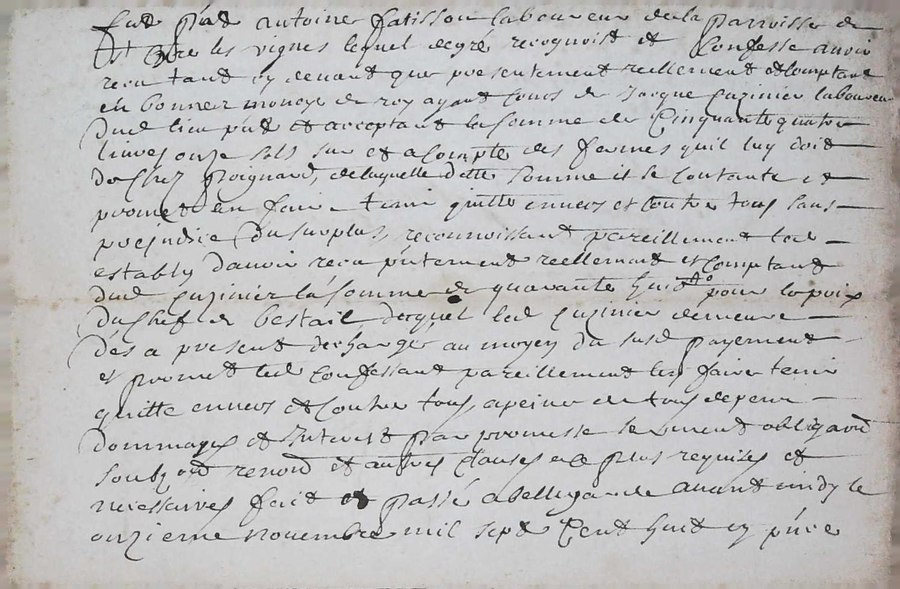 fut p'nt antoine fatisson laboureur de la parroisse de
les vignes lequel de gré recognoist et Confesse avoir
receu tant cy devant que presentement reellement et Comptant
en bonne monoye de roy ayant Cours de Jacque Cuzinier laboureur
dud lieu p'nt et acceptant la somme de Cinquante quatre
livres onze sols sur et a Compte des fermes quil luy doit
de Chez poignard, de laquelle ditte somme il se Contante et
promet en faire tenir quitte envers et Contre tous sans
prejudice du surplus, reconnoissant pareillement led
estably davoir receu p'ntement reellement et Comptant
dud Cuzinier la somme de quarante huict # pour le prix
du Chef de bestail, duquel led Cuzinier demeure
dés a present decharge au moyen du susd payement
et promet led Confessant pareillement len faire tenir
quitte envers et Contre tous, a peine de tous depens
dommages et Interest par promesse serment obligaon
renon et autres Clauses a ce plus requises et
necessaires fait et passé a bellegarde avant midy le
onzieme novembre mil sept Cent huit en p'nce